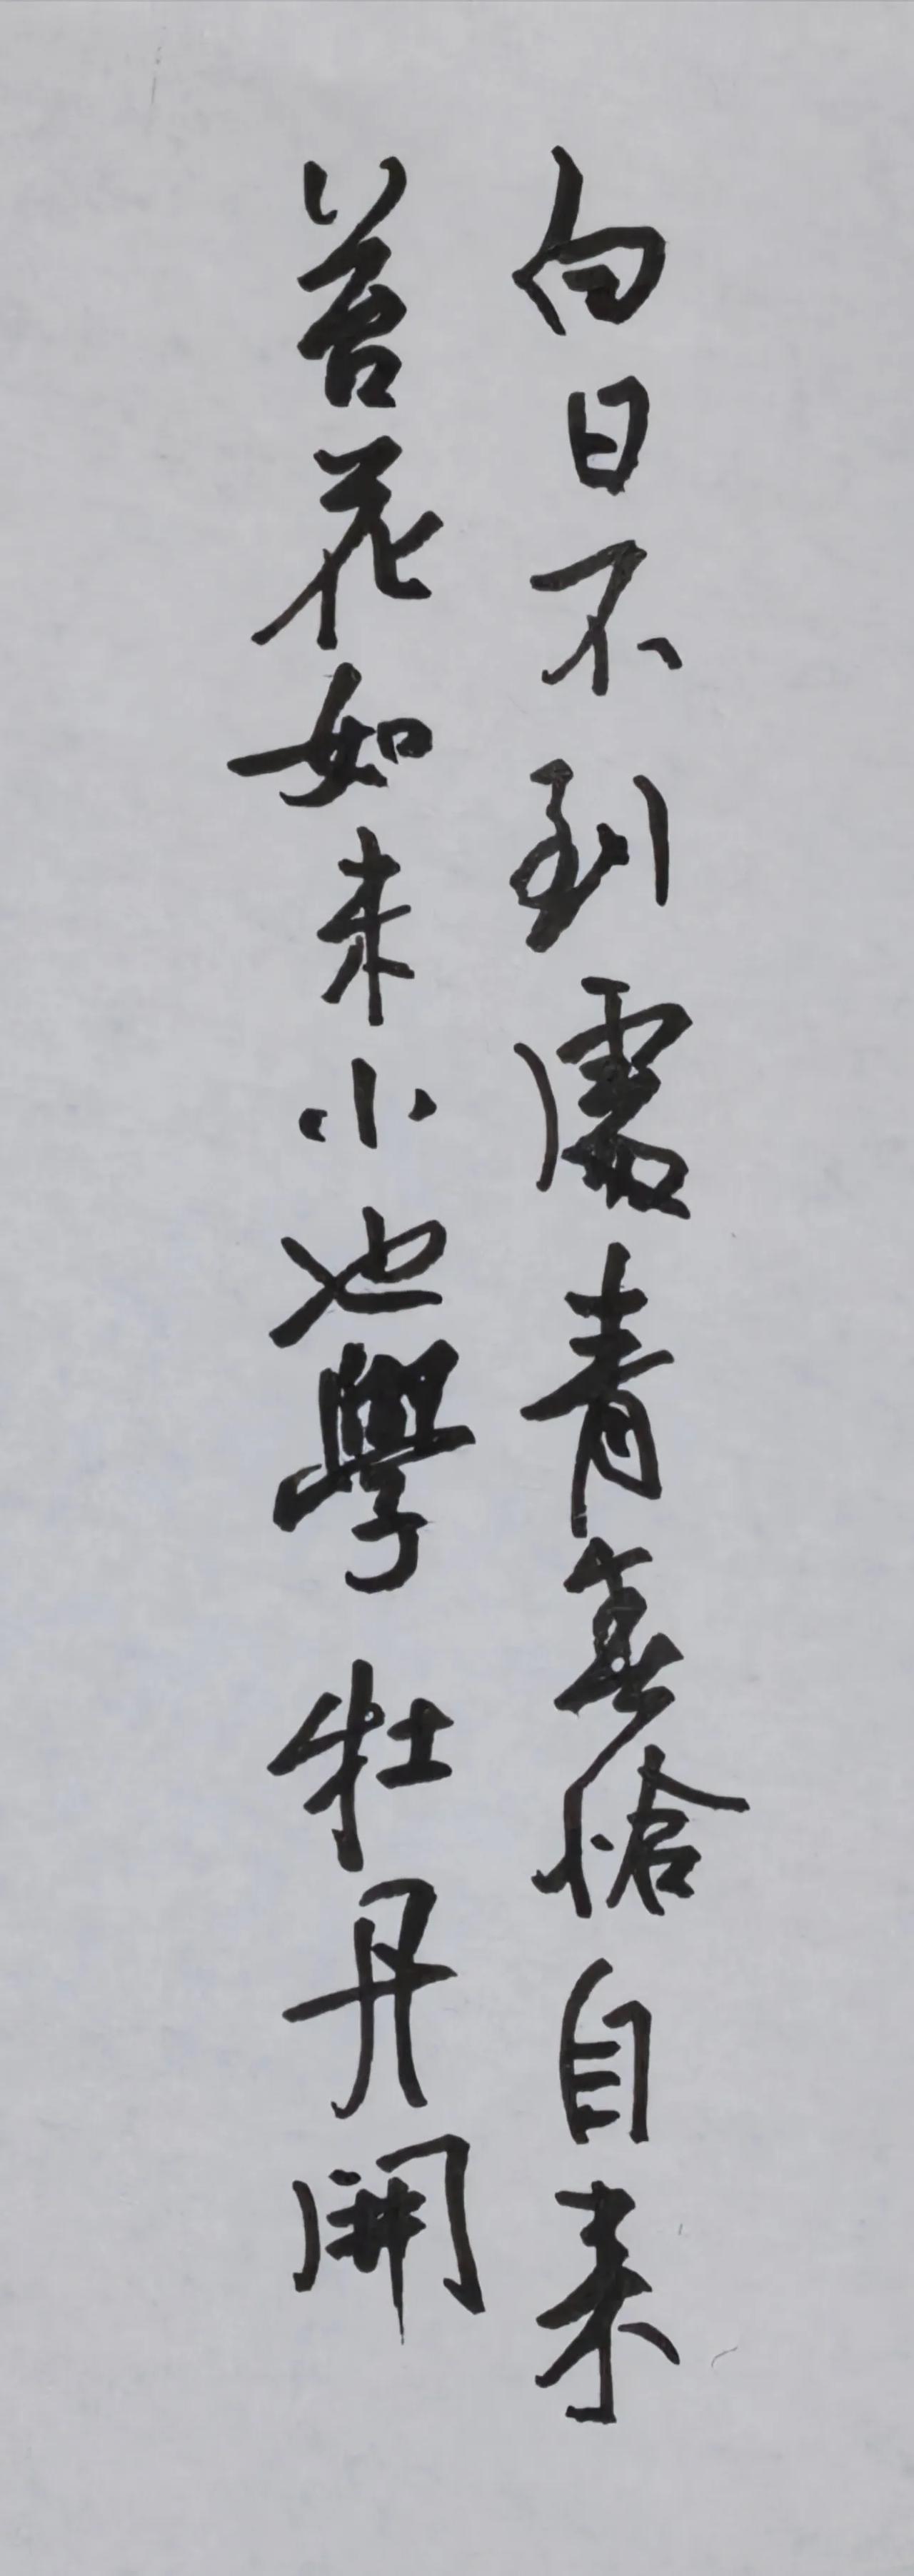 白日不到處青春恰自来
苔花如米小也學牡丹開